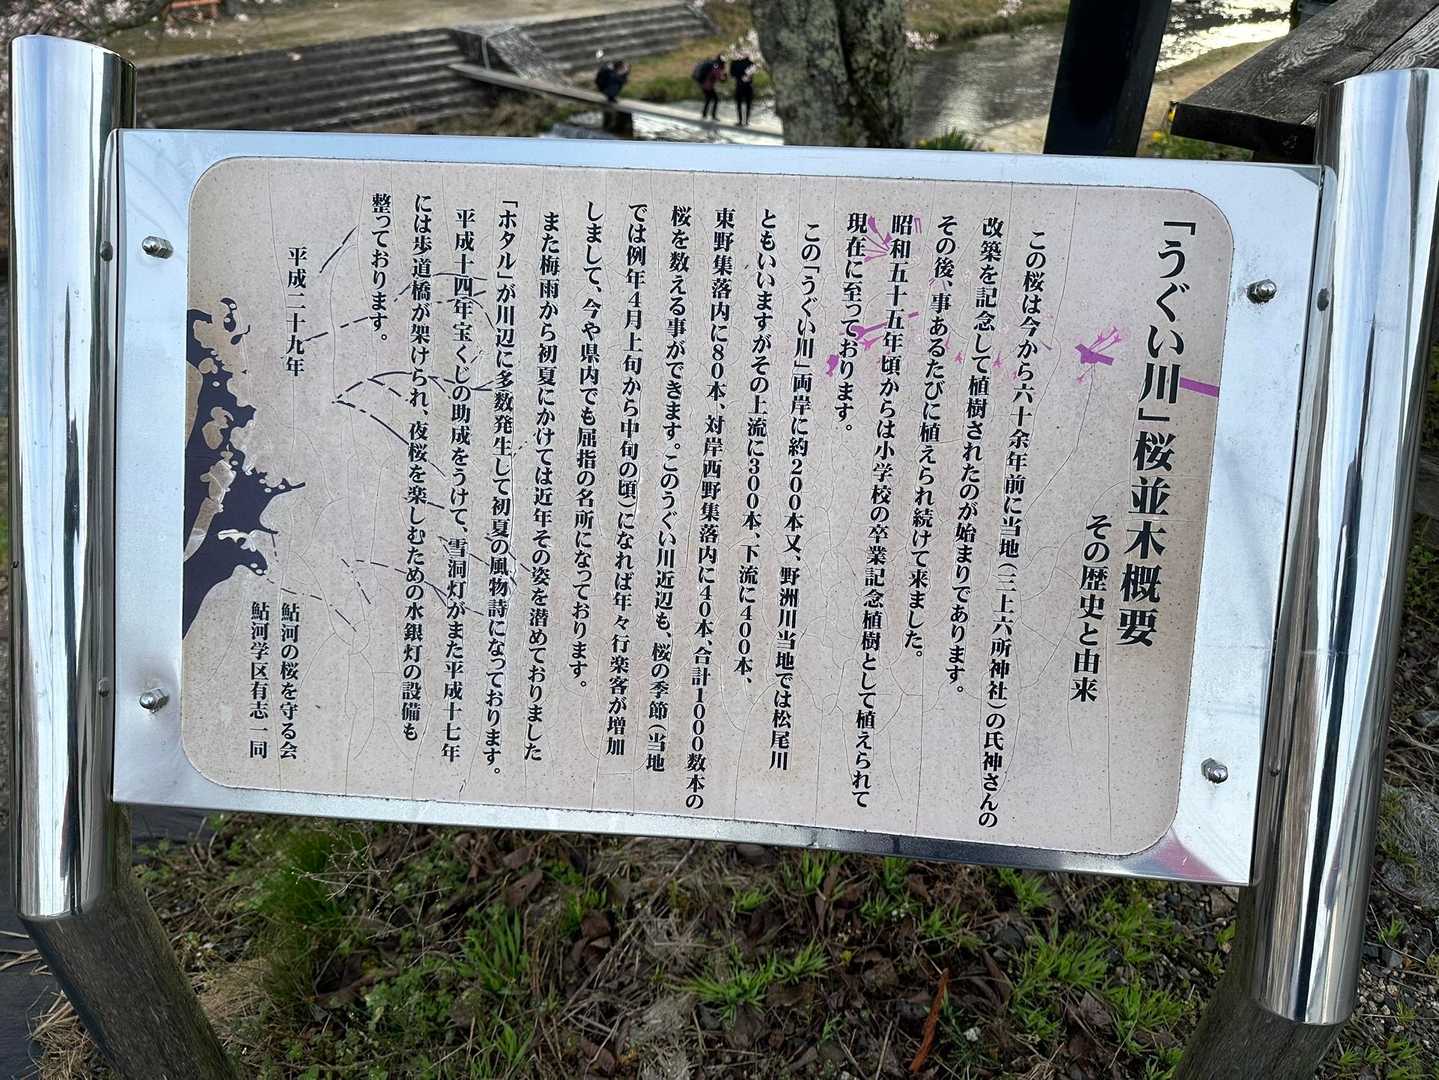 「うぐい川」桜並木概要
その歴史と由来
この桜は今から六十余年前に当地（三上六所神社）の氏神さんの
改築を記念して植樹されたのが始まりであります。
その後、事あるたびに植えられ続けて来ました。
昭和五十五年頃からは小学校の卒業記念植樹として植えられて
現在に至っております。
この「うぐい川」両岸に約200本又、野洲川当地では松尾川
ともいいますがその上流に300本、下流に400本、
東野集落内に80本、対岸西野集落内に40本、合計1000数本の
桜を数える事ができます。このうぐい川近辺も、桜の季節（当地
では例年4月上旬から中旬の頃）になれば年々行楽客が増加
しまして、今や県内でも屈指の名所になっております。
また梅雨から初夏にかけては近年その姿を潜めておりました
「ホタル」が川辺に多数発生して初夏の風物詩になっております。
平成十四年宝くじの助成をうけて、雪洞灯がまた平成十七年
には歩道橋が架けられ、夜桜を楽しむための水銀灯の設備も
整っております。
平成二十九年
鮎河の桜を守る会
鮎河学区有志一同